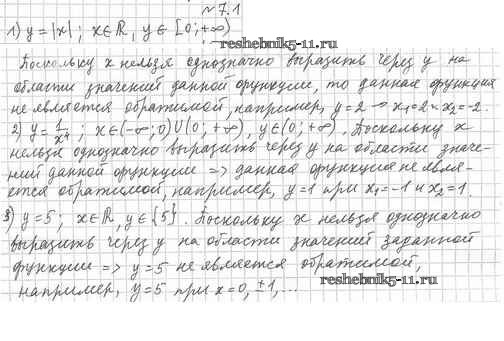 №7.1
1) y=|x|; x∈R, y∈[0;+∞)
reshebnik5-11.ru
Поскольку x нельзя однозначно выразить через y на
области значений данной функции, то данная функция
не является обратимой, например, y=2 → x₁=2 и x₂=-2.
2) y=1/x⁴; x∈(-∞;0)∪(0;+∞), y∈(0;+∞). Поскольку x
нельзя однозначно выразить через y на области значе-
ний данной функции => данная функция не явля-
ется обратимой, например, y=1 при x₁=-1 и x₂=1.
3) y=5; x∈R, y∈{5}. Поскольку x нельзя однозначно
выразить через y на области значений заданной
функции => y=5 не является обратимой,
reshebnik5-11.ru
например, y=5 при x=0, ±1, ...